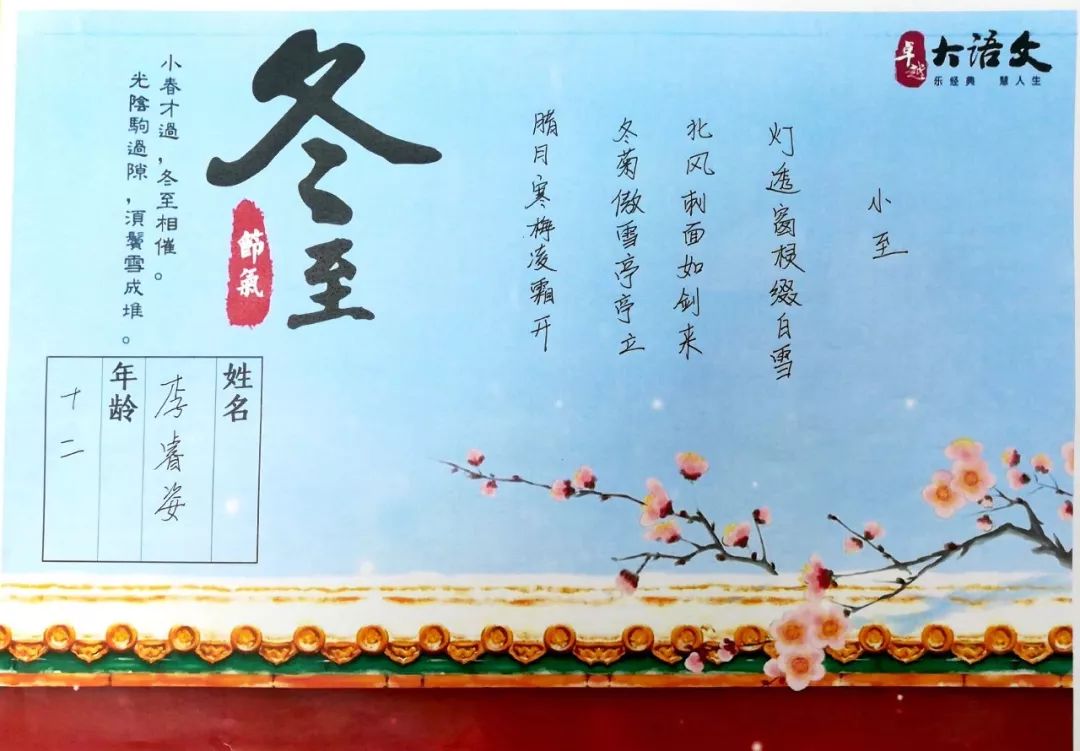 卓越
大语文
乐经典 慧人生
小至
灯透窗棂缀白雪
北风刺面如剑来
冬菊傲雪亭亭立
腊月寒梅凌霜开
冬至
節氣
小春才過，冬至相催。
光陰駒過隙，須鬢雪成堆。
姓名
李睿姿
年龄
十二